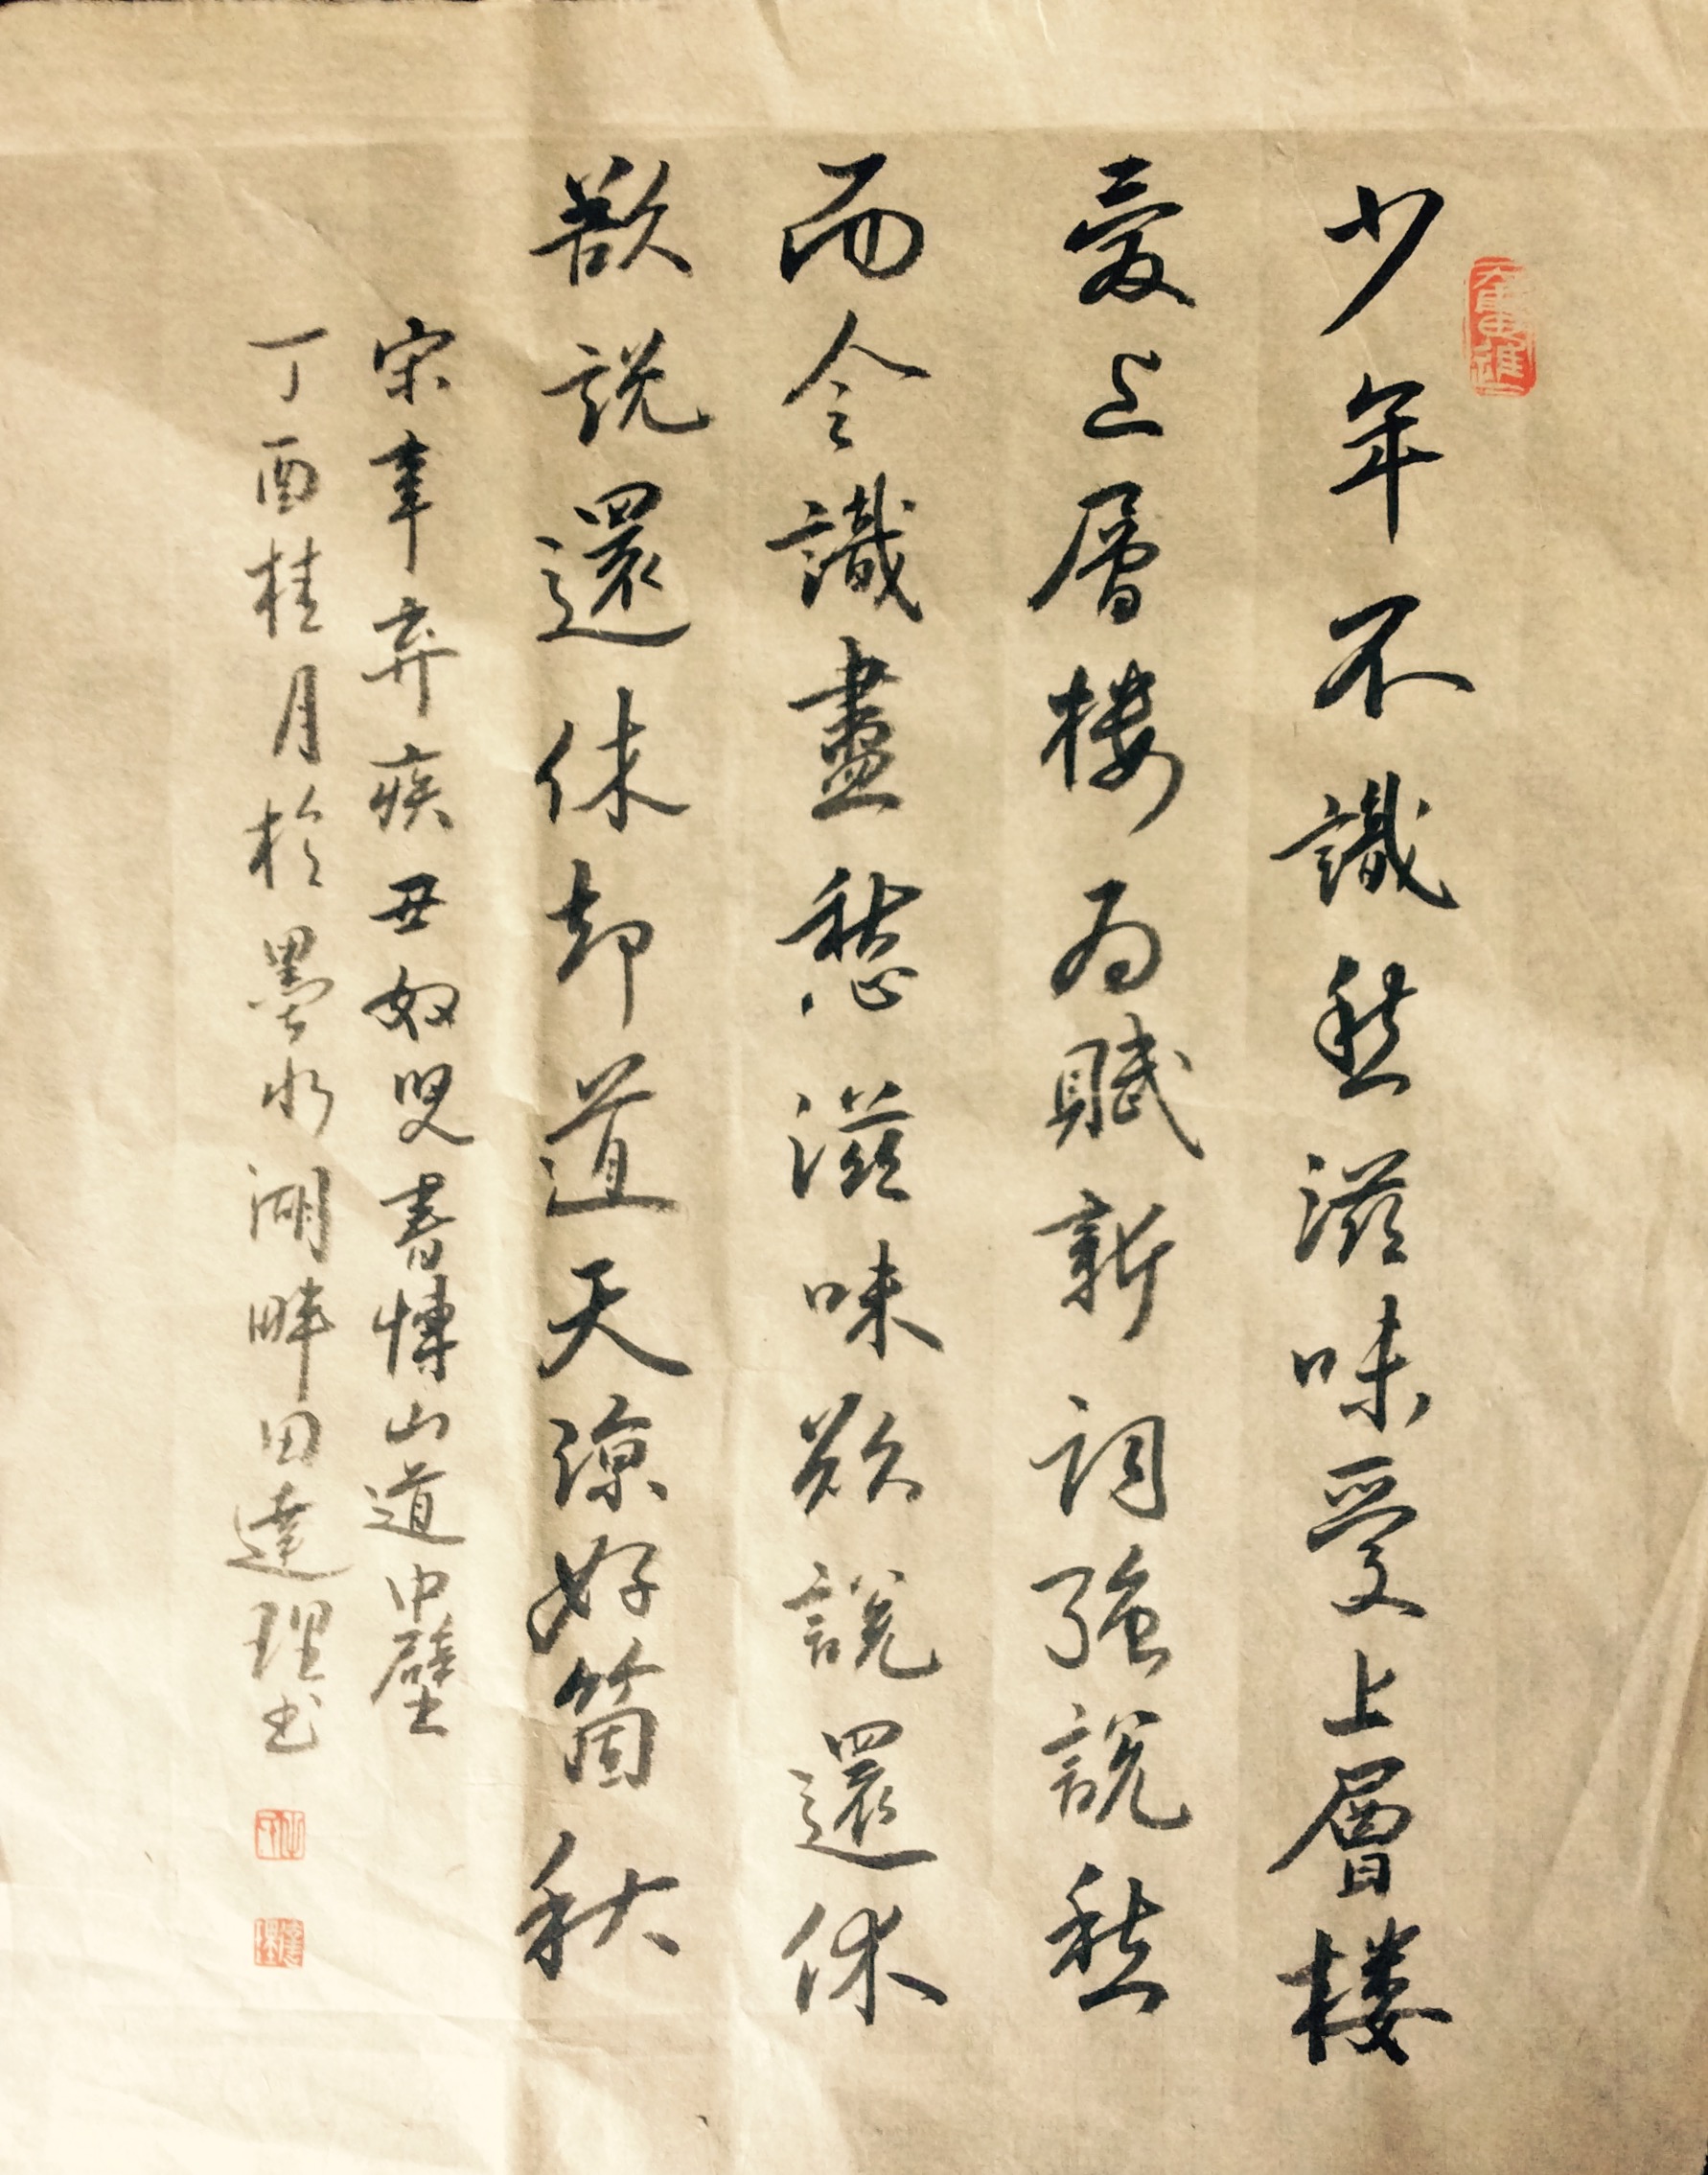 少年不識愁滋味愛上層樓
愛上層樓為賦新詞強說愁
而今識盡愁滋味欲說還休
欲說還休却道天涼好箇秋
宋辛棄疾丑奴兒書博山道中壁
丁酉桂月於墨水湖畔田達理书